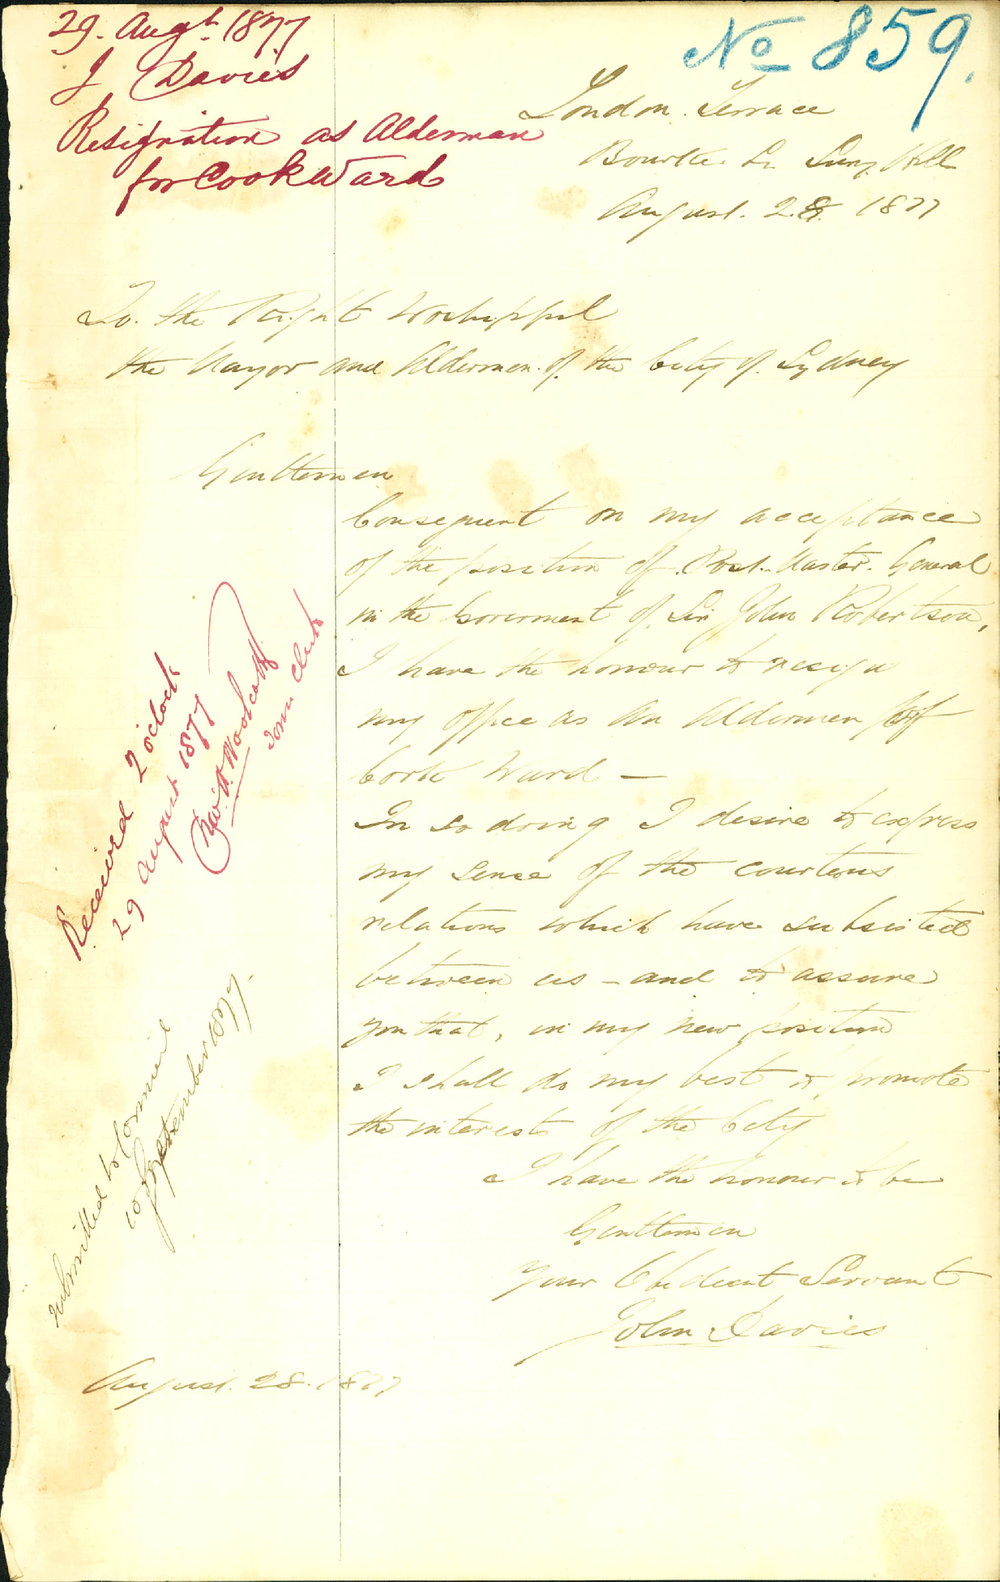 29. Augt. 1877
J Davies
Resignation as Alderman
for Cook Ward
No 859.
London Terrace
Bourke St Surry Hills
August. 28. 1877
To. the Right Worshipful
the Mayor and Aldermen of. the City of. Sydney
Gentlemen
Consequent on my acceptance
of the position of Post. Master. General
in the Goverment of. Sir John Robertson,
I have the honour to resign
my office as an Aldermen for
Cook Ward —
In so doing I desire to express
my sense of the courteous
relations which have subsisted
between us – and to assure
you that, in my new position
I shall do my best to promote
the interests of the City
I have the honour to be
Gentlemen
Your Obedient Servant
John Davies
August. 28. 1877
Received 2 o'clock
29 August 1877
Chas. H. Woolcott
Town Clerk
Submitted to Council
10 September 1877.